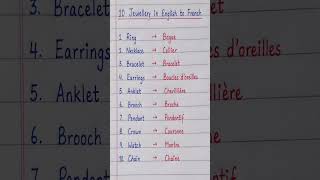 10 Jewellery In English to French
1. Ring → Bague
2. Necklace → Collier
3. Bracelet → Bracelet
4. Earrings → Boucles d'oreilles
5. Anklet → Chevillière
6. Brooch → Broche
7. Pendant → Pendentif
8. Crown → Couronne
9. Watch → Montre
10. Chain → Chaîne
3. Bracelet
4. Earrings
5. Anklet
6. Brooch
7. Pendant
d'oreilles